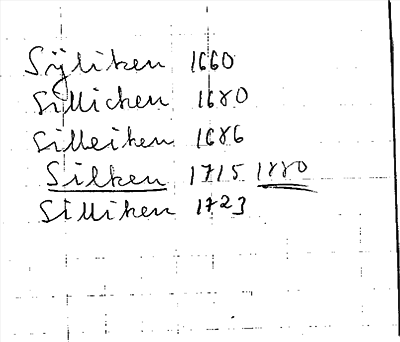 Sÿliken 1660
Sillichen 1680
Silleiken 1686
Silken 1715 1880
Silliken 1723